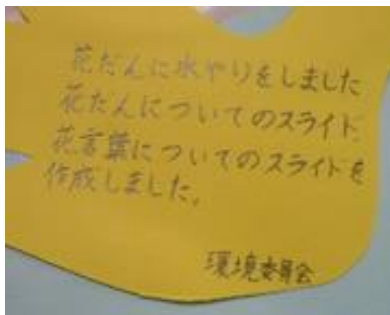 花だんに水やりをしました
花だんについてのスライド、
花言葉についてのスライドを
作成しました。
環境委員会